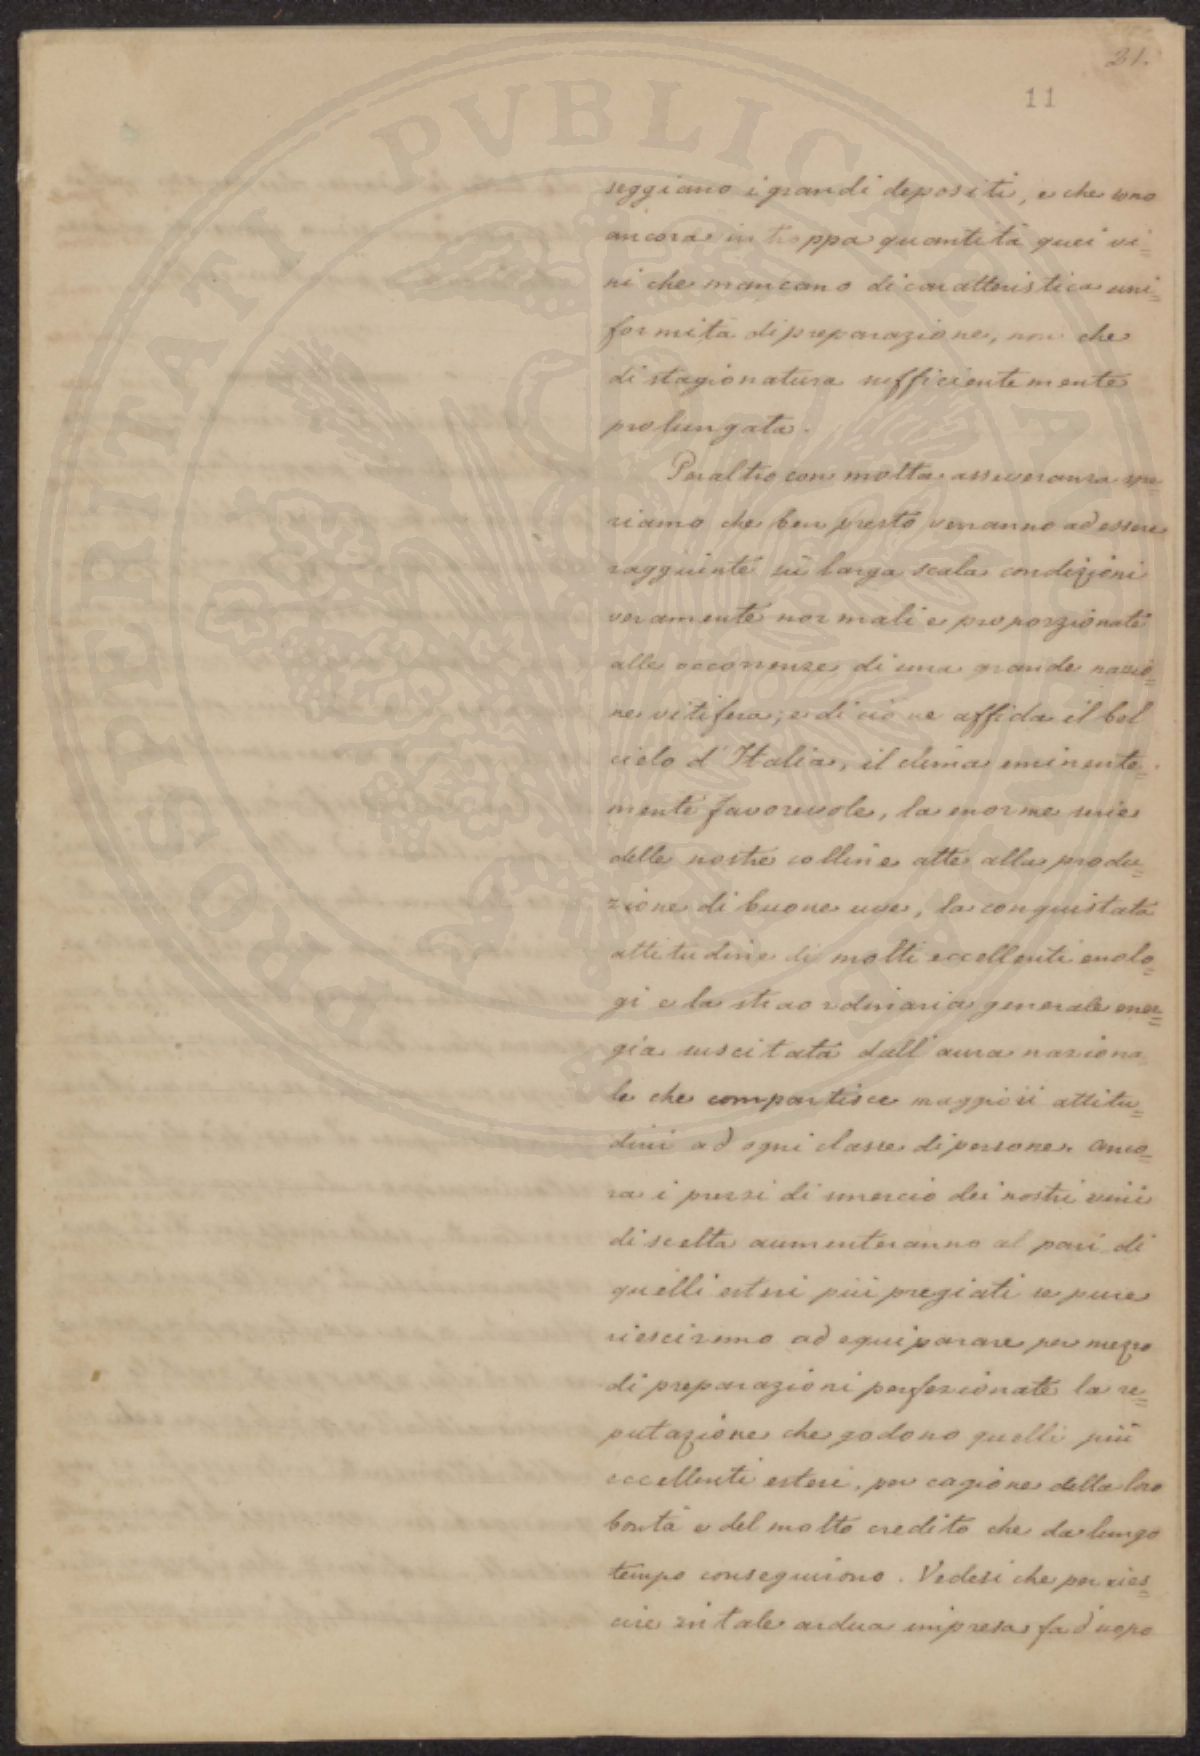 31.
11
PROSPERITATI PVBLICAE AVGENDAE
seggiano i grandi depositi, e che sono
ancora in troppa quantità quei vi=
ni che mancano di caratteristica uni=
formità di preparazione, non che
di stagionatura sufficientemente
prolungata.
Peraltro con molta asseveranza spe=
riamo che ben presto verranno ad essere
raggiunte su larga scala condizioni
veramente normali e proporzionate
alle occorrenze di una grande nazio=
ne vitifera; e di ciò ne affida il bel
cielo d'Italia, il clima eminente=
mente favorevole, la enorme serie
delle nostre colline atte alla produ=
zione di buone uve, la conquistata
attitudine di molti eccellenti enolo=
gi e la straordinaria generale ener=
gia suscitata dall'aura naziona
le che compartisce maggiori attitu=
dini ad ogni classe di persone. Anco=
ra i prezzi di smercio dei nostri vini
di scelta aumenteranno al pari di
quelli esteri più pregiati se pure
riesciremo ad equiparare per mezzo
di preparazioni perfezionate la re=
putazione che godono quelli più
eccellenti esteri, per cagione della loro
bontà e del molto credito che da lungo
tempo conseguirono. Vedesi che per ries=
cire in tale ardua impresa fa d'uopo